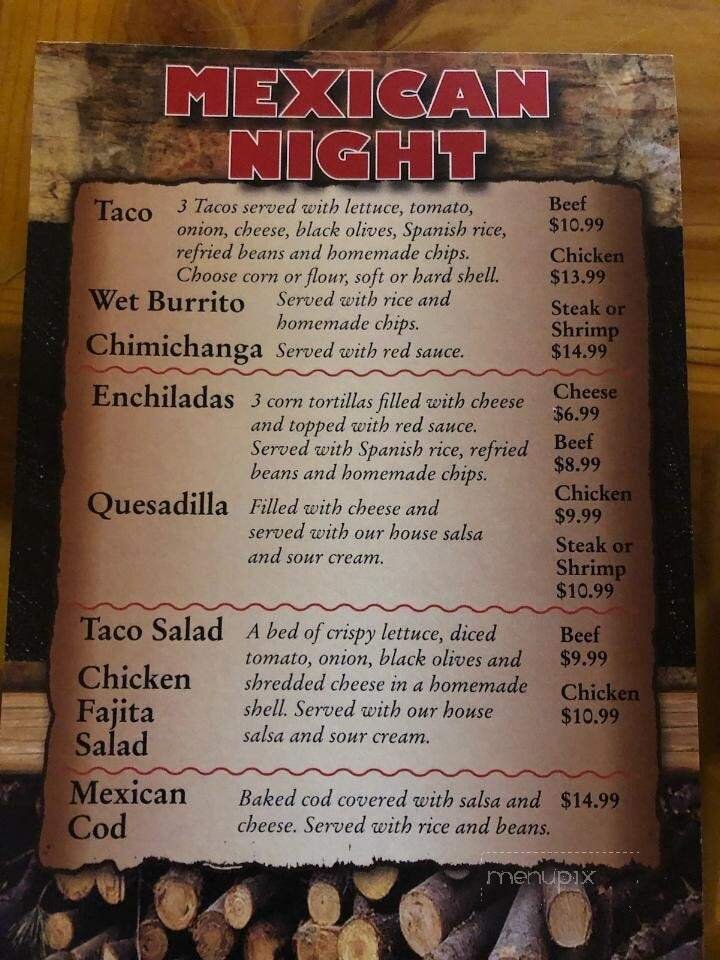 MEXICAN
NIGHT
Taco
3 Tacos served with lettuce, tomato,
onion, cheese, black olives, Spanish rice,
refried beans and homemade chips.
Choose corn or flour, soft or hard shell.
Wet Burrito
Served with rice and
homemade chips.
Chimichanga
Served with red sauce.
Beef
$10.99
Chicken
$13.99
Steak or
Shrimp
$14.99
Enchiladas
3 corn tortillas filled with cheese
and topped with red sauce.
Served with Spanish rice, refried
beans and homemade chips.
Quesadilla
Filled with cheese and
served with our house salsa
and sour cream.
Cheese
$6.99
Beef
$8.99
Chicken
$9.99
Steak or
Shrimp
$10.99
Taco Salad
Chicken
Fajita
Salad
A bed of crispy lettuce, diced
tomato, onion, black olives and
shredded cheese in a homemade
shell. Served with our house
salsa and sour cream.
Beef
$9.99
Chicken
$10.99
Mexican
Cod
Baked cod covered with salsa and
cheese. Served with rice and beans.
$14.99
menupix